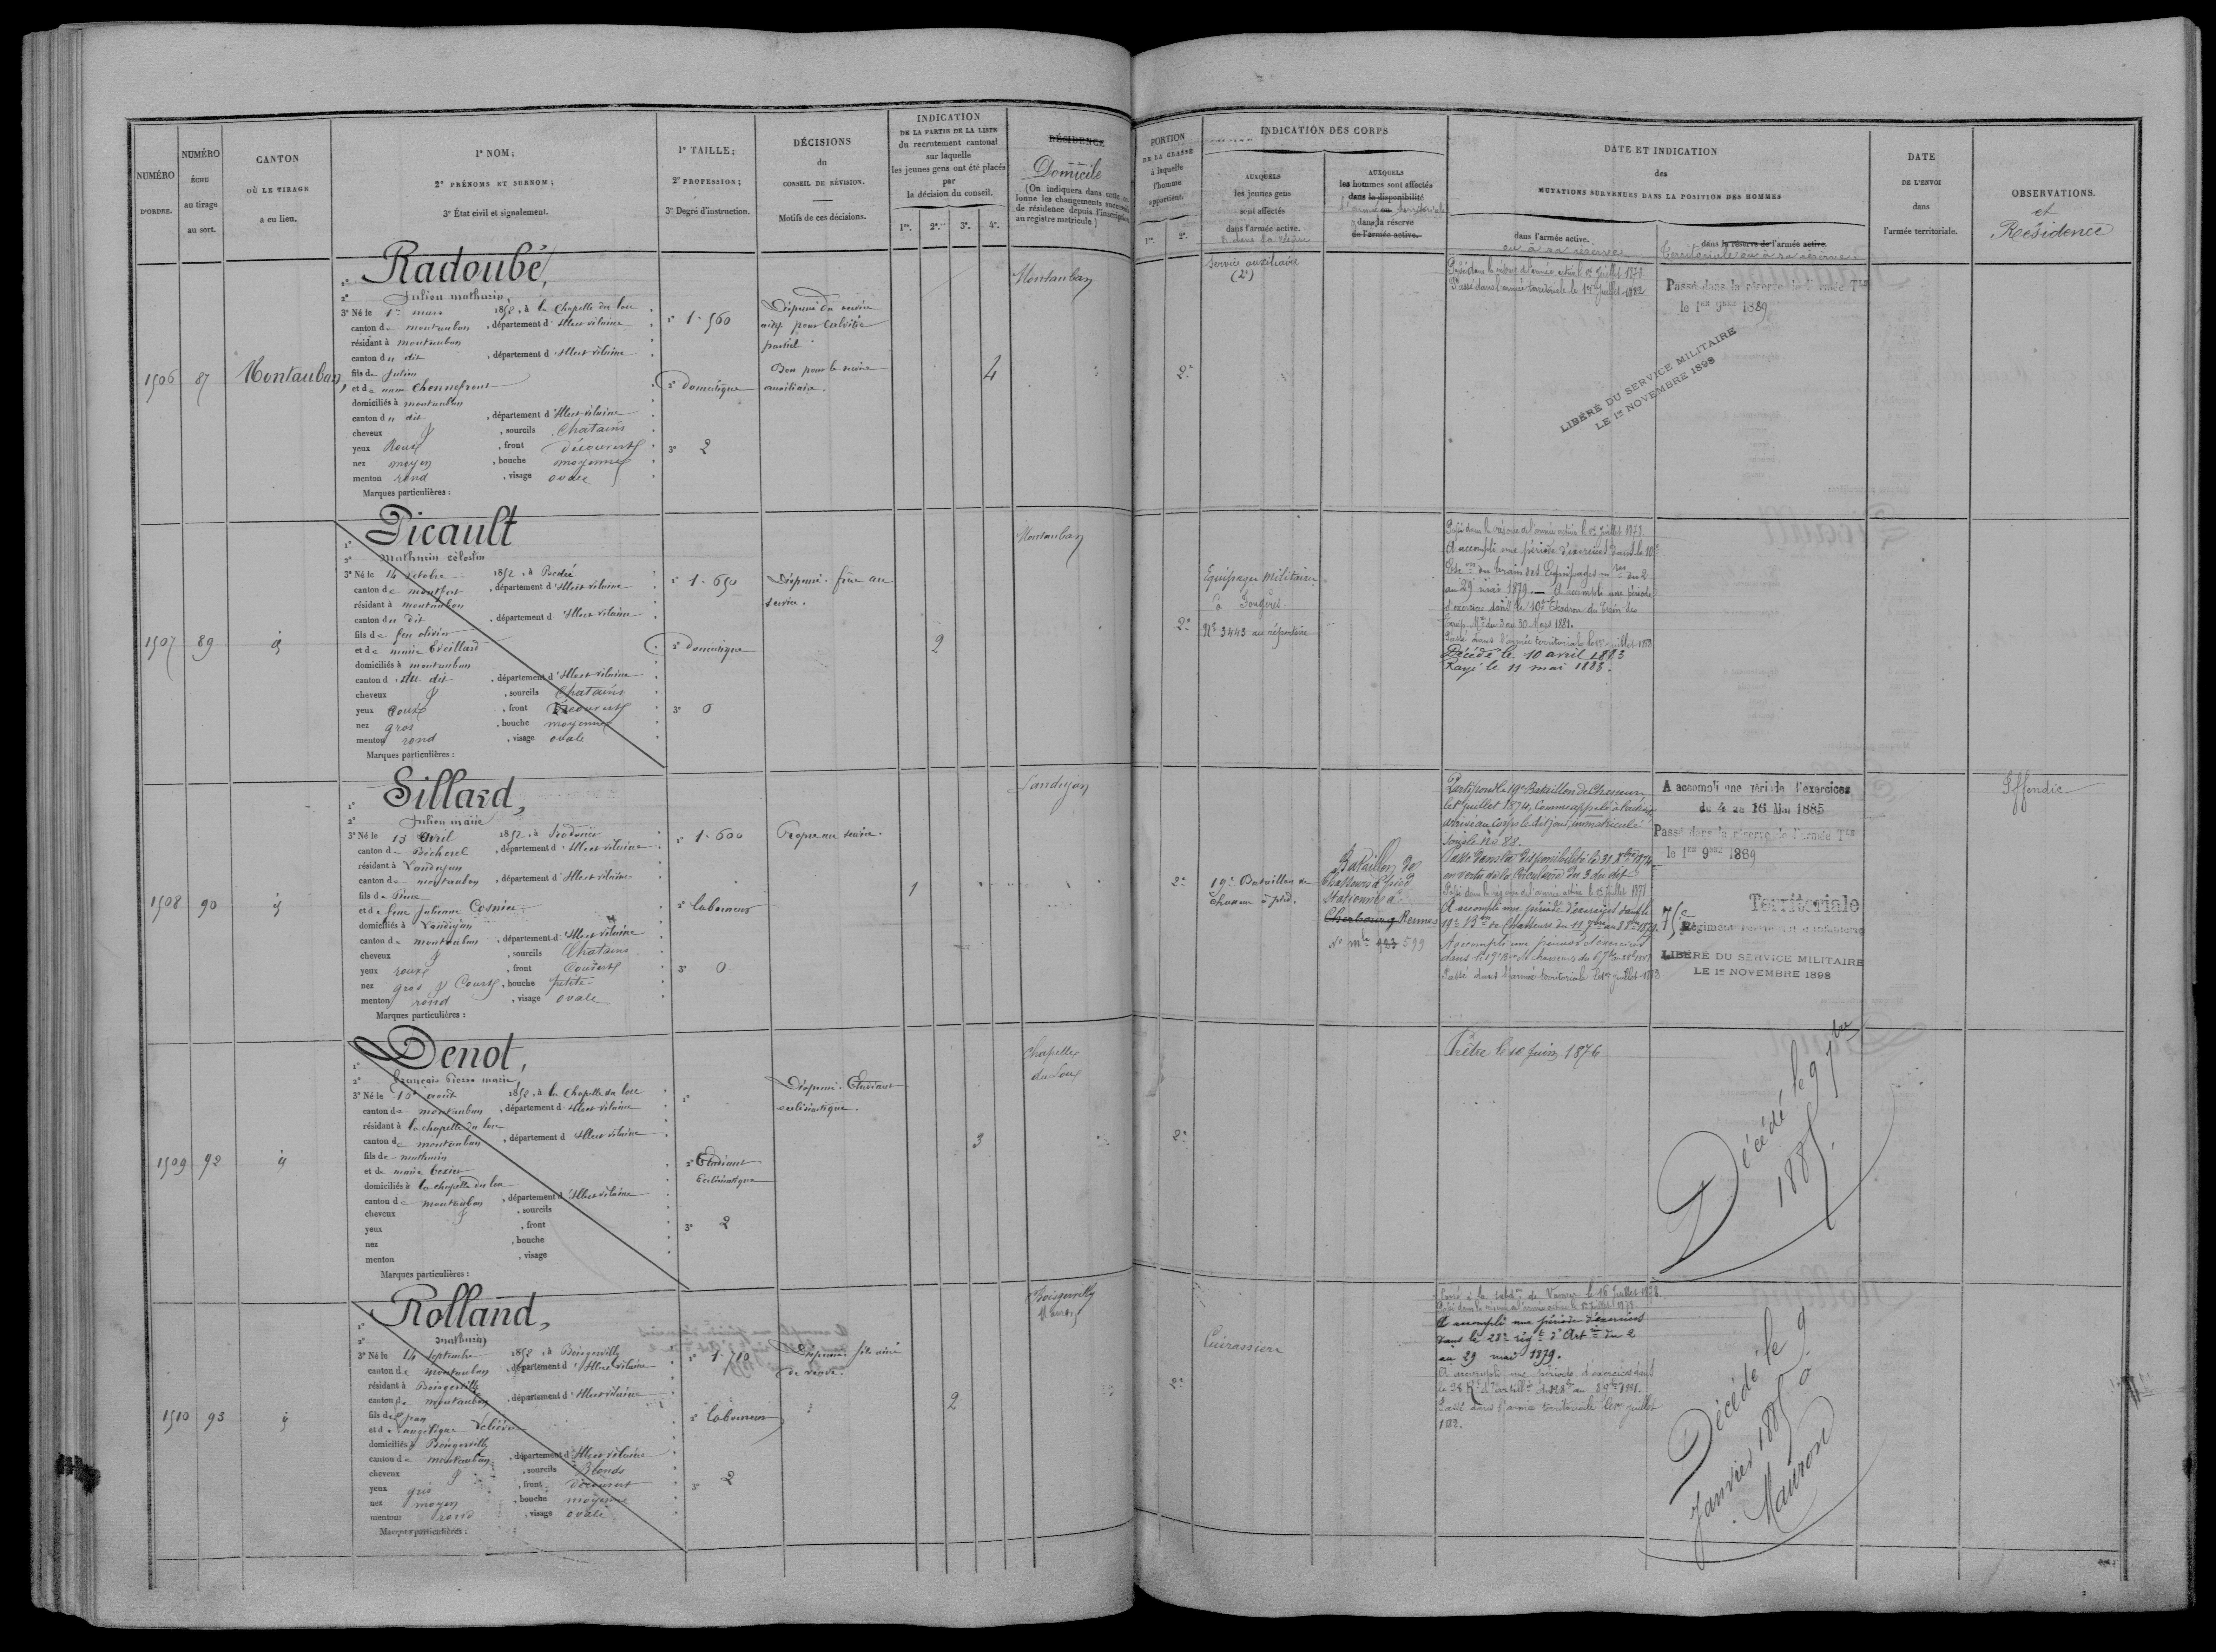 NUMÉRO
D'ORDRE.
NUMÉRO
ÉCHU
au tirage
au sort.
CANTON
OÙ LE TIRAGE
a eu lieu.
1º NOM;
2º PRÉNOMS ET SURNOM;
3º État civil et signalement.
1º TAILLE;
2º PROFESSION;
3º Degré d'instruction.
DÉCISIONS
du
CONSEIL DE RÉVISION.
Motifs de ces décisions.
INDICATION
DE LA PARTIE DE LA LISTE
du recrutement cantonal
sur laquelle
les jeunes gens ont été placés
par
la décision du conseil.
1re. 2e. 3e. 4e.
RÉSIDENCE
Domicile
(On indiquera dans cette co-
lonne les changements successifs
de résidence depuis l'inscription
au registre matricule.)
1506
87
Montauban
Radoubé,
2º Julien mathurin,
3º Né le 1er mars 1852, à la Chapelle du lou
canton de montauban, département d'Illeet vilaine
résidant à montauban
canton du dit, département d'Illeet vilaine
fils de Julien
et de
domiciliés à montauban
canton du dit, département d'Illeet vilaine
cheveux, sourcils Chatains
yeux Roux, front découvert
nez moyen, bouche moyenne
menton rond, visage ovale
Marques particulières :
1º 1-560
2º domestique
3º 2
Dispensé du service
actif pour Calvitie
partiel
Bon pour le service
auxiliaire.
4
Montauban
1507
89
Dicault
2º Mathurin célestin
3º Né le 14 octobre 1852, à Bedée
canton de montfort, département d'Illeet vilaine
résidant à montauban
canton du dit, département d'Illeet vilaine
fils de feu olivier
et de marie
domiciliés à montauban
canton du dit, département d'Illeet vilaine
cheveux, sourcils Chatains
yeux roux, front Découvert
nez gros, bouche moyenne
menton rond, visage ovale
Marques particulières :
1º 1-650
2º domestique
3º 0
Dispensé. frère au
service.
2
Montauban
1508
90
Sillard,
2º Julien marie
3º Né le 13 avril 1852, à
canton de Bécherel, département d'Illeet vilaine
résidant à Landujan
canton de montauban, département d'Illeet vilaine
fils de Pierre
et de feue Julienne Cosnier
domiciliés à Landujan
canton de montauban, département d'Illeet vilaine
cheveux, sourcils Chatains
yeux roux, front Couvert
nez gros Court, bouche petite
menton rond, visage ovale
Marques particulières :
1º 1-600
2º laboureur
3º 0
Propre au service.
1
Landujan
1509
92
Denot,
2º français Pierre marie
3º Né le 10 août 1852, à la Chapelle du lou
canton de montauban, département d'Illeet vilaine
résidant à la chapelle du lou
canton de montauban, département d'Illeet vilaine
fils de mathurin
et de marie
domiciliés à la chapelle du lou
canton de montauban, département d'Illeet vilaine
cheveux, sourcils
yeux, front
nez, bouche
menton, visage
Marques particulières :
1º
2º Etudiant
Ecclésiastique
3º 2
Dispensé. Etudiant
ecclésiastique.
3
Chapelle
du Lou
1510
93
Rolland,
2º mathurin
3º Né le 14 septembre 1852, à Boisgervilly
canton de montauban, département d'Illeet vilaine
résidant à Boisgervilly
canton de montauban, département d'Illeet vilaine
fils de Jean
et de angélique
domiciliés à Boisgervilly
canton de montauban, département d'Illeet vilaine
cheveux, sourcils Blonds
yeux gris, front découvert
nez moyen, bouche moyenne
menton rond, visage ovale
Marques particulières :
1º 1-710
2º laboureur
3º 2
Dispensé. fils ainé
de veuve.
2
Boisgervilly
Mauron
PORTION
DE LA CLASSE
à laquelle
l'homme
appartient.
1re. 2e.
INDICATION DES CORPS
AUXQUELS
les jeunes gens
sont affectés
dans l'armée active.
& dans la réserve
AUXQUELS
les hommes sont affectés
dans la disponibilité
l'armée ou territoriale
dans la réserve
de l'armée active.
DATE ET INDICATION
des
MUTATIONS SURVENUES DANS LA POSITION DES HOMMES
dans l'armée active.
ou à sa réserve
dans la réserve de l'armée active.
territoriale ou à sa réserve
DATE
DE L'ENVOI
dans
l'armée territoriale.
OBSERVATIONS.
et
Résidence
2e
Service auxiliaire
(2e)
Passé dans la réserve de l'armée active le 1er Juillet 1878
Passé dans l'armée territoriale le 1er Juillet 1882
Passé dans la réserve de l'armée Tle
le 1er 9bre 1889
LIBÉRÉ DU SERVICE MILITAIRE
LE 1er NOVEMBRE 1898
2e
Equipages Militaires
à Fougères
Nº 3443 au répertoire
Passé dans la réserve de l'armée active le 1er Juillet 1878
A accompli une période d'exercices dans le 10e
Esc on du train des Equipages mres du 2
au 29 mai 1879. — A accompli une période
d'exercices dans le 10e Escadron du Train des
Equip. Mres du 3 au 30 Mars 1881.
Passé dans l'armée territoriale le 1er juillet 1882
Décédé le 10 avril 1883
Rayé le 11 mai 1883.
2e
19e Bataillon de
Chasseurs à pied.
Bataillon de
Chasseurs à pied
Stationné à
Cherbourg Rennes
Nº mle 599
Parti pour le 19e Bataillon de Chasseurs,
le 1er Juillet 1874, Comme appelé à l'activité,
arrivé au Corps le dit jour, immatriculé
sous le Nº 88.
Passé dans la disponibilité le 31 Xbre 1874
en vertu de la Circulaire du 3 du dit
Passé dans la réserve de l'armée active le 1er Juillet 1878
A accompli une période d'exercices dans le
19e Bon de Chasseurs du 11 7bre au 8 8bre 1879.
A accompli une période d'exercices
dans le 19e Bon de chasseurs
Passé dans l'armée territoriale le 1er juillet 1883
A accompli une période d'exercices
du 4 au 16 Mai 1885
Passé dans la réserve de l'armée Tle
le 1er 9bre 1889
75e Territoriale
Régiment territorial d'infanterie
LIBÉRÉ DU SERVICE MILITAIRE
LE 1er NOVEMBRE 1898
Iffendic
2e
Prêtre le 10 juin 1876
Décédé le 9 7bre
1885.
2e
Cuirassiers
Passé à la subdon de Vannes le 16 Juillet 1878
Passé dans la réserve de l'armée active le 1er Juillet 1878
A accompli une période d'exercices
dans le 28e régt d'Artie du 2
au 29 mai 1879.
A accompli une période d'exercices dans
le 28 Rt d'artillie
Passé dans l'armée territoriale le 1er juillet
1882.
Décédé le 9
Janvier 1885 à
Mauron